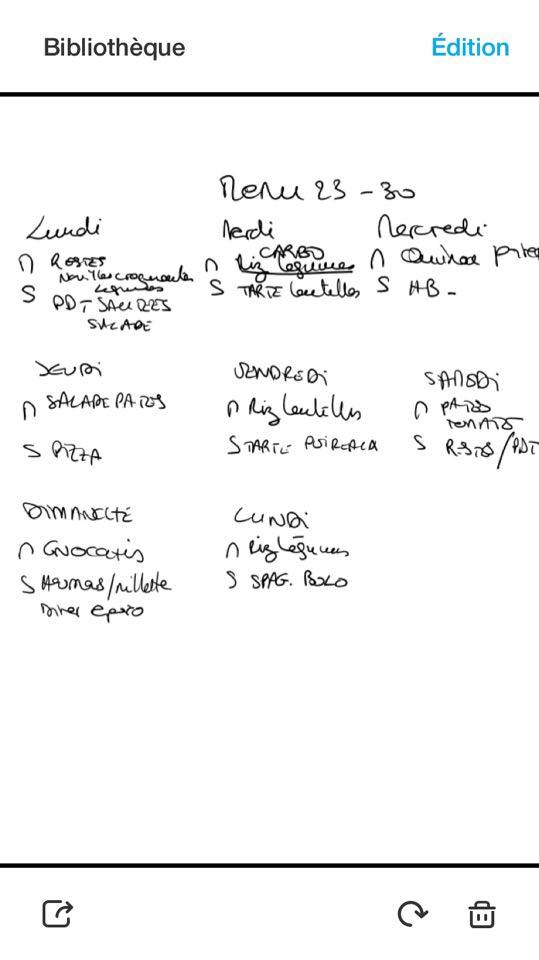 Bibliothèque
Édition
Menu 23 - 30
Lundi
n RESTES
Nouilles croquantes
Légumes
S PDT SAUCISSES
SALADE
Mardi
CARBO
n Riz légumes
S TARTE lentilles
Mercredi
n Quinoa
S HB -
JEUDI
n SALADE PATES
S PIZZA
VENDREDI
n Riz lentilles
S TARTE
SAMEDI
n PATES
TOMATES
S RESTES/PDT
DIMANCHE
n GNOCCHIS
S Houmas/rillette
Diner apéro
LUNDI
n Riz légumes
S SPAG. BOLO